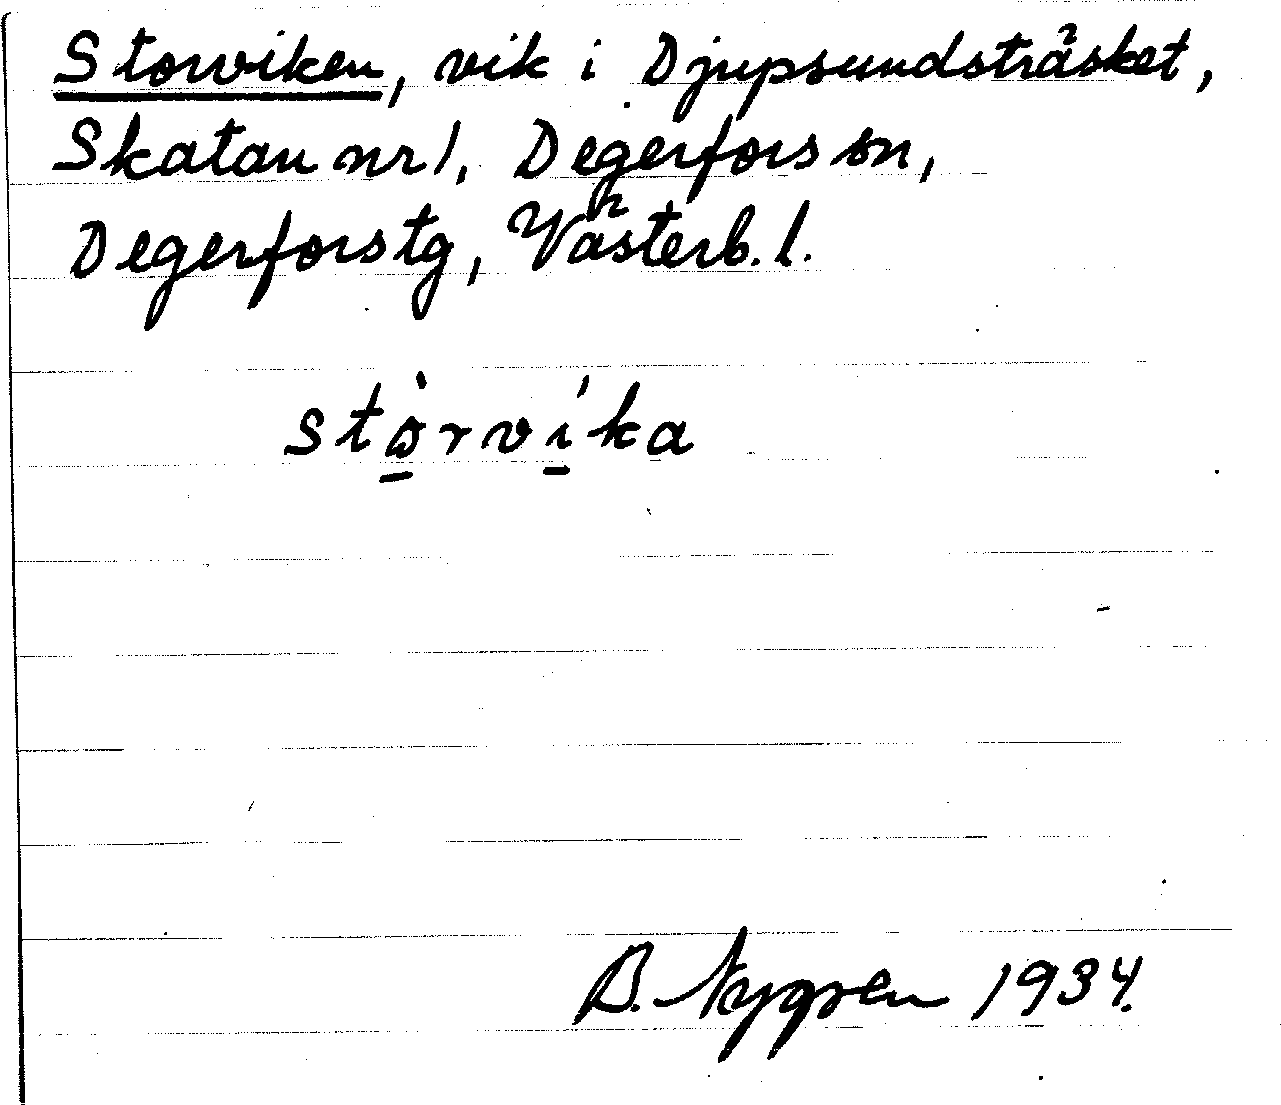 Storviken, vik i Djupsundsträsket,
Skatan nr 1, Degerfors sn,
Degerfors tg, Västerb. l.
stò̱rví̱ka
B. Nygren 1934.